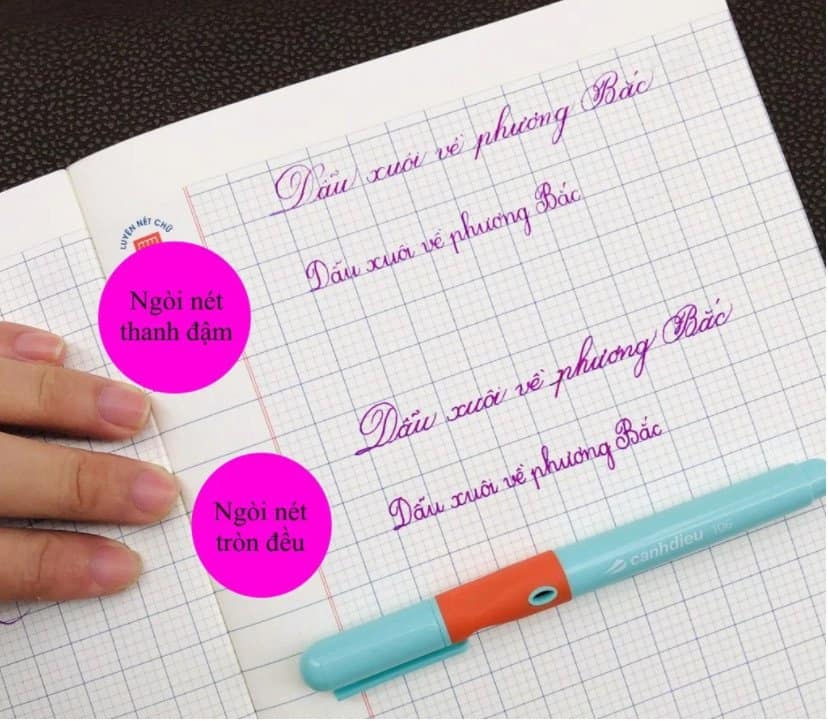 LUYỆN NÉT CHỮ
Dẩu xuôi về phương Bắc
Dẩu xuôi về phương Bắc
Ngòi nét
thanh đậm
Dẩu xuôi về phương Bắc
Dẩu xuôi về phương Bắc
Ngòi nét
tròn đều
canhdieu 106